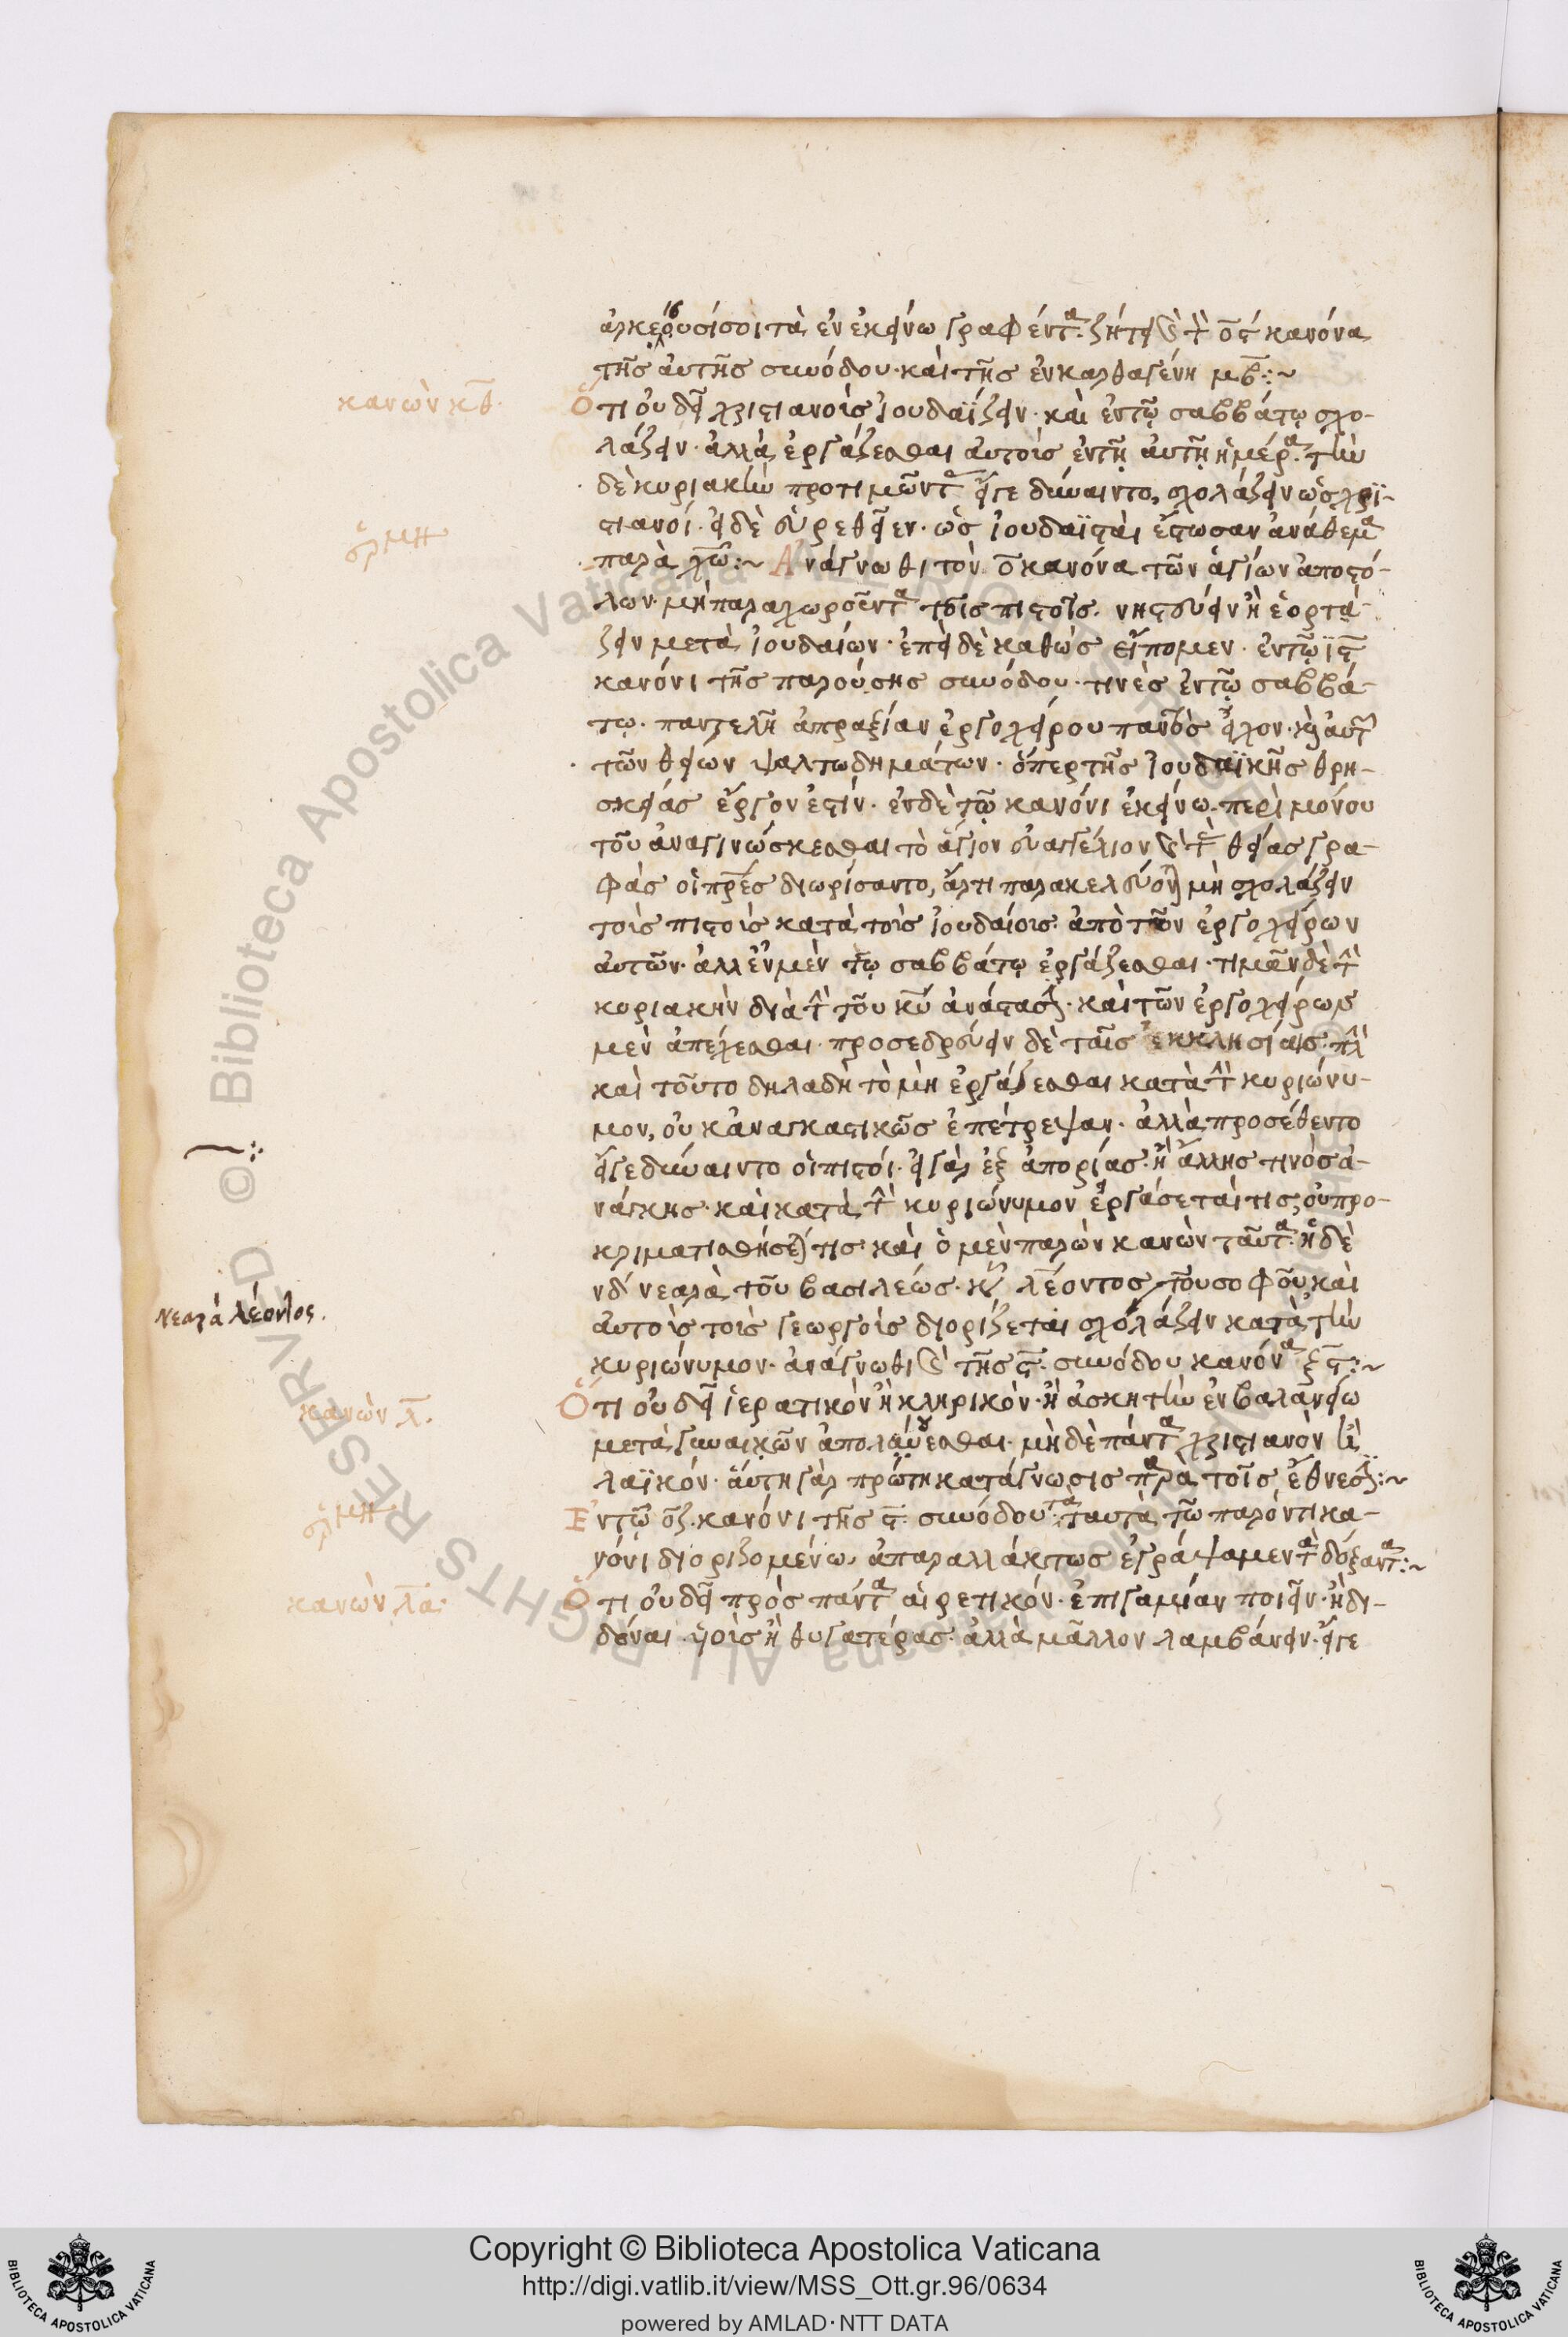 ἀρκέσουσί σοι τὰ ἐν ἐκείνω γραφέντα. ζήτει καὶ τὸν ος κανόνα
τῆς αὐτῆς συνόδου. καὶ τῆς ἐν καρθαγένη μβ:~
κανὼν κθ.
Ὅτι οὐ δεῖ χριστιανοὶς ἰουδαΐζειν. καὶ ἐν τῷ σαββάτῳ σχο-
λάζειν. ἀλλὰ ἐργάζεσθαι αὐτοὶς ἐν τῇ αὐτῇ ἡμέρα. τὴν
δὲ κυριακὴν προτιμῶντας εἴγε δύναιντο, σχολάζειν ὡς χρι-
στιανοί. εἰ δὲ εὑρεθεῖεν. ὡς ἰουδαϊσταὶ ἔστωσαν ἀνάθεμα
παρὰ χῶ:~ Ἀνάγνωθι τὸν ο κανόνα τῶν ἁγίων ἀποστό-
λων. μὴ παραχωροῦντα τοῖς πιστοῖς. νηστεύειν ἢ ἑορτά-
ζειν μετὰ ἰουδαίων. ἐπεὶ δὲ καθὼς εἴπομεν. ἐν τῷ ις
κανόνι τῆς παρούσης συνόδου. τινὲς ἐν τῷ σαββά-
τῳ. παντελῆ ἀπραξίαν ἐργοχείρου παντὸς εἶχον. καὶ αὐτῶν
τῶν θείων ψαλτωδημάτων. ὅπερ τῆς ἰουδαϊκῆς θρη-
σκείας ἔργον ἐστίν. ἐν δὲ τῷ κανόνι ἐκείνω. περὶ μόνου
τοῦ ἀναγινώσκεσθαι τὸ ἅγιον εὐαγγέλιον καὶ τὰς θείας γρα-
φὰς οἱ πρες διωρίσαντο, ἄρτι παρακελεύονται μὴ σχολάζειν
τοὶς πιστοὶς κατὰ τοὶς ἰουδαίοις. ἀπὸ τῶν ἐργοχείρων
αὐτῶν. ἀλλ ἐν μὲν τῷ σαββάτῳ ἐργάζεσθαι. τιμᾶν δὲ τὴν
κυριακὴν διὰ τὴν τοῦ κυ ἀνάστασιν. καὶ τῶν ἐργοχείρων
μὲν ἀπέχεσθαι. προσεδρεύειν δὲ ταῖς ἐκκλησίαις. πλὴν
καὶ τοῦτο δηλαδὴ τὸ μὴ ἐργάζεσθαι κατὰ τὴν κυριώνυ-
μον, οὐκ ἀναγκαστικῶς ἐπέτρεψαν. ἀλλὰ προσέθεντο
εἴγε δύναιντο οἱ πιστοί. εἰ γὰρ ἐξ ἀπορίας. ἢ ἄλλης τινὸς ἀ-
νάγκης. καὶ κατὰ τὴν κυριώνυμον ἐργάσεταί τις, οὐ προ-
κριματισθήσεταί τις καὶ ὁ μὲν παρὼν κανὼν ταῦτα. ἡ δὲ
νδ νεαρὰ τοῦ βασιλέως κυ λέοντος τοῦ σοφοῦ, καὶ
νεαρὰ λέοντος.
αὐτοὶς τοὶς γεωργοὶς διορίζεται σχολάζειν κατὰ τὴν
κυριώνυμον. ἀνάγνωθι καὶ τῆς ς. συνόδου κανόνα ξς:~
κανὼν λ.
Ὅτι οὐ δεῖ ἱερατικὸν ἢ κληρικὸν. ἢ ἀσκητὴν ἐν βαλανείω
μετὰ γυναικῶν ἀπολούεσθαι. μὴ δὲ πάντα χριστιανὸν ἢ
λαϊκόν. αὕτη γὰρ πρώτη κατάγνωσις παρὰ τοῖς ἔθνεσιν:~
Ἐν τῷ οζ. κανόνι τῆς ς. συνόδου τὰ ταυτὰ τῷ παρόντι κα-
νόνι διοριζομένω. ἀπαραλλάκτως ἐγράψαμεν τὰ δόξαντα:~
κανὼν λα.
Ὅτι οὐ δεῖ πρὸς πάντα αἱρετικόν. ἐπιγαμίαν ποιεῖν. ἢ δι-
δόναι υἱοὶς ἢ θυγατέρας. ἀλλὰ μᾶλλον λαμβάνειν. εἴγε
Copyright © Biblioteca Apostolica Vaticana
http://digi.vatlib.it/view/MSS_Ott.gr.96/0634
powered by AMLAD·NTT DATA